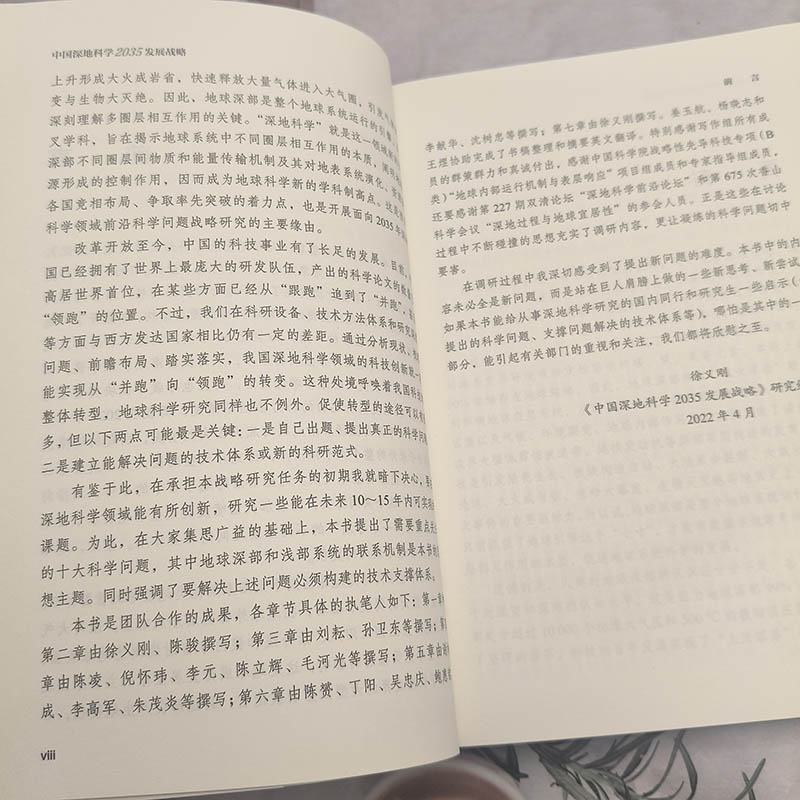 中国深地科学2035发展战略
上升形成大火成岩省，快速释放大量气体进入大气圈，引发气
变与生物大灭绝。因此，地球深部是整个地球系统运行的引擎，
深刻理解多圈层相互作用的关键。“深地科学”就是这一领域新的
叉学科，旨在揭示地球系统中不同圈层相互作用的本质，阐明
深部不同圈层间物质和能量传输机制及其对地表系统演化、资
源形成的控制作用，因而成为地球科学新的学科制高点。这是
各国竞相布局、争取率先突破的着力点，也是开展面向2035年深
科学领域前沿科学问题战略研究的主要缘由。
改革开放至今，中国的科技事业有了长足的发展。目前，
国已经拥有了世界上最庞大的研发队伍，产出的科学论文的
高居世界首位，在某些方面已经从“跟跑”追到了“并跑”，
“领跑”的位置。不过，我们在科研设备、技术方法体系和研究
等方面与西方发达国家相比仍有一定的差距。通过分析现状、
问题、前瞻布局、踏实落实，我国深地科学领域的科技创新
能实现从“并跑”向“领跑”的转变。这种处境呼唤着我国科技
整体转型，地球科学研究同样也不例外。促使转型的途径可以有
多，但以下两点可能最是关键：一是自己出题、提出真正的科学问
二是建立能解决问题的技术体系或新的科研范式。
有鉴于此，在承担本战略研究任务的初期我就暗下决心，
深地科学领域能有所创新，研究一些能在未来10～15年内可实现
课题。为此，在大家集思广益的基础上，本书提出了需要重点
的十大科学问题，其中地球深部和浅部系统的联系机制是本书的
想主题。同时强调了要解决上述问题必须构建的技术支撑体系。
本书是团队合作的成果，各章节具体的执笔人如下：第一章
第二章由徐义刚、陈骏撰写；第三章由刘耘、孙卫东等撰写；第
章由陈凌、倪怀玮、李元、陈立辉、毛河光等撰写；第五章由
成、李高军、朱茂炎等撰写；第六章由陈赟、丁阳、吴忠庆、鲍惠
viii
前 言
李献华、沈树忠等撰写；第七章由徐义刚撰写。姜玉航、杨晓志和
王煜协助完成了书稿整理和摘要英文翻译。特别感谢写作组所有成
员的群策群力和真诚付出，感谢中国科学院战略性先导科技专项（B
类）“地球内部运行机制与表层响应”项目组成员和专家指导组成员，
还要感谢第227期双清论坛“深地科学前沿论坛”和第675次香山
科学会议“深地过程与地球宜居性”的参会人员。正是这些在讨论
过程中不断碰撞的思想充实了调研内容，更让凝练的科学问题切中
要害。
在调研过程中我深切感受到了提出新问题的难度。本书中的内
容未必全是新问题，而是站在巨人肩膀上做的一些新思考、新尝试
如果本书能给从事深地科学研究的国内同行和研究生一些启示（
提出的科学问题、支撑问题解决的技术体系等），哪怕是其中的一
部分，能引起有关部门的重视和关注，我们都将欣慰之至。
徐义刚
《中国深地科学2035发展战略》研究组
2022年4月